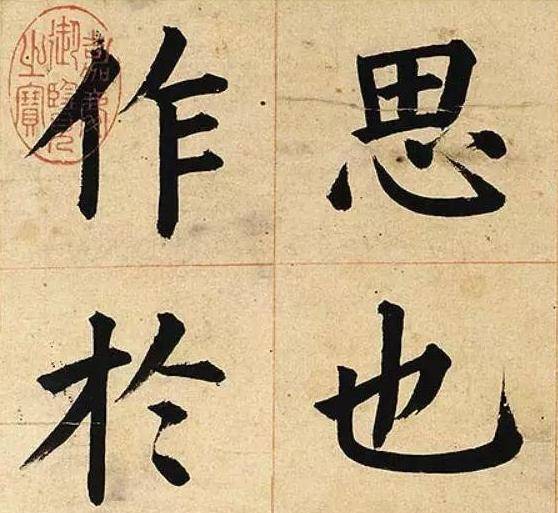 思也
作於
嘉慶
御覽
之寶